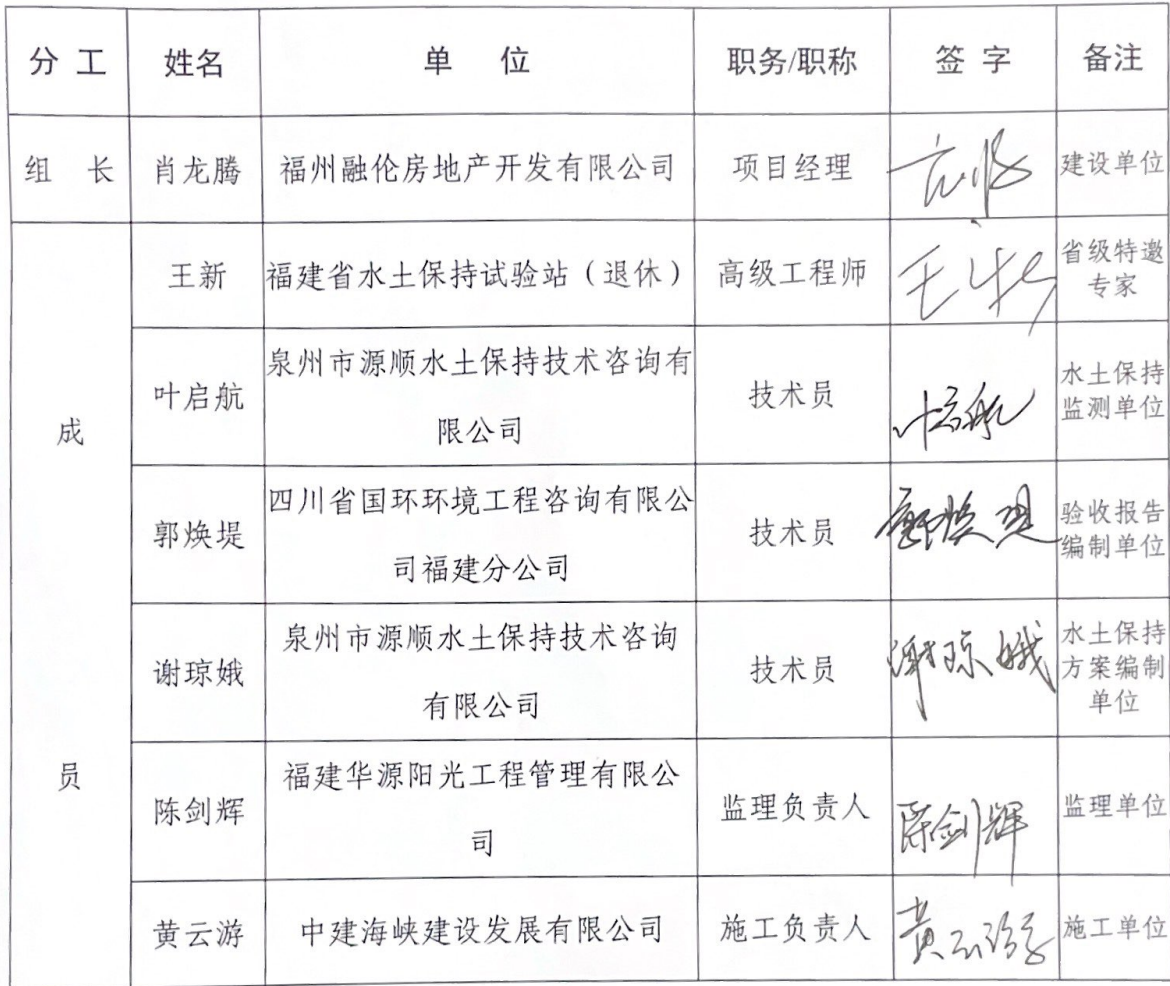 分 工 姓名 单 位 职务/职称 签 字 备注
组 长 肖龙腾 福州融伦房地产开发有限公司 项目经理 建设单位
成
员
王新 福建省水土保持试验站（退休） 高级工程师 王新 省级特邀
专家
叶启航 泉州市源顺水土保持技术咨询有
限公司 技术员 叶启航 水土保持
监测单位
郭焕堤 四川省国环环境工程咨询有限公
司福建分公司 技术员 郭焕堤 验收报告
编制单位
谢琼娥 泉州市源顺水土保持技术咨询
有限公司 技术员 谢琼娥 水土保持
方案编制
单位
陈剑辉 福建华源阳光工程管理有限公
司 监理负责人 陈剑辉 监理单位
黄云游 中建海峡建设发展有限公司 施工负责人 黄云游 施工单位